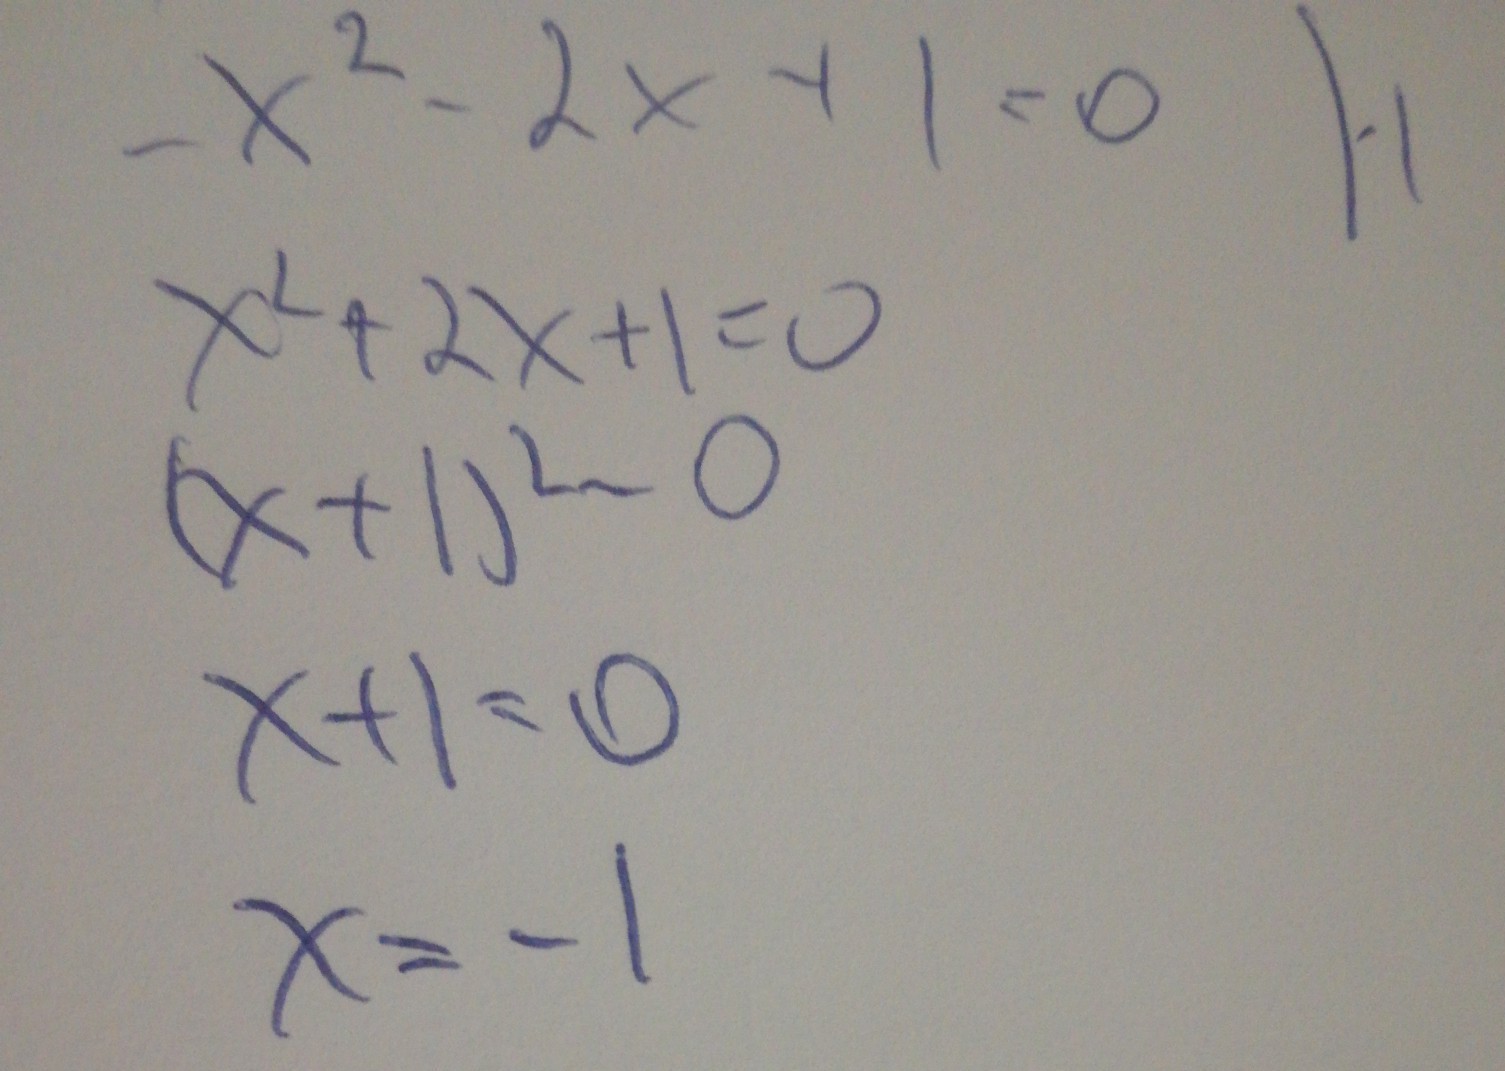 -x² - 2x + 1 = 0 |·1
x² + 2x + 1 = 0
(x + 1)² - 0
x + 1 = 0
x = - 1